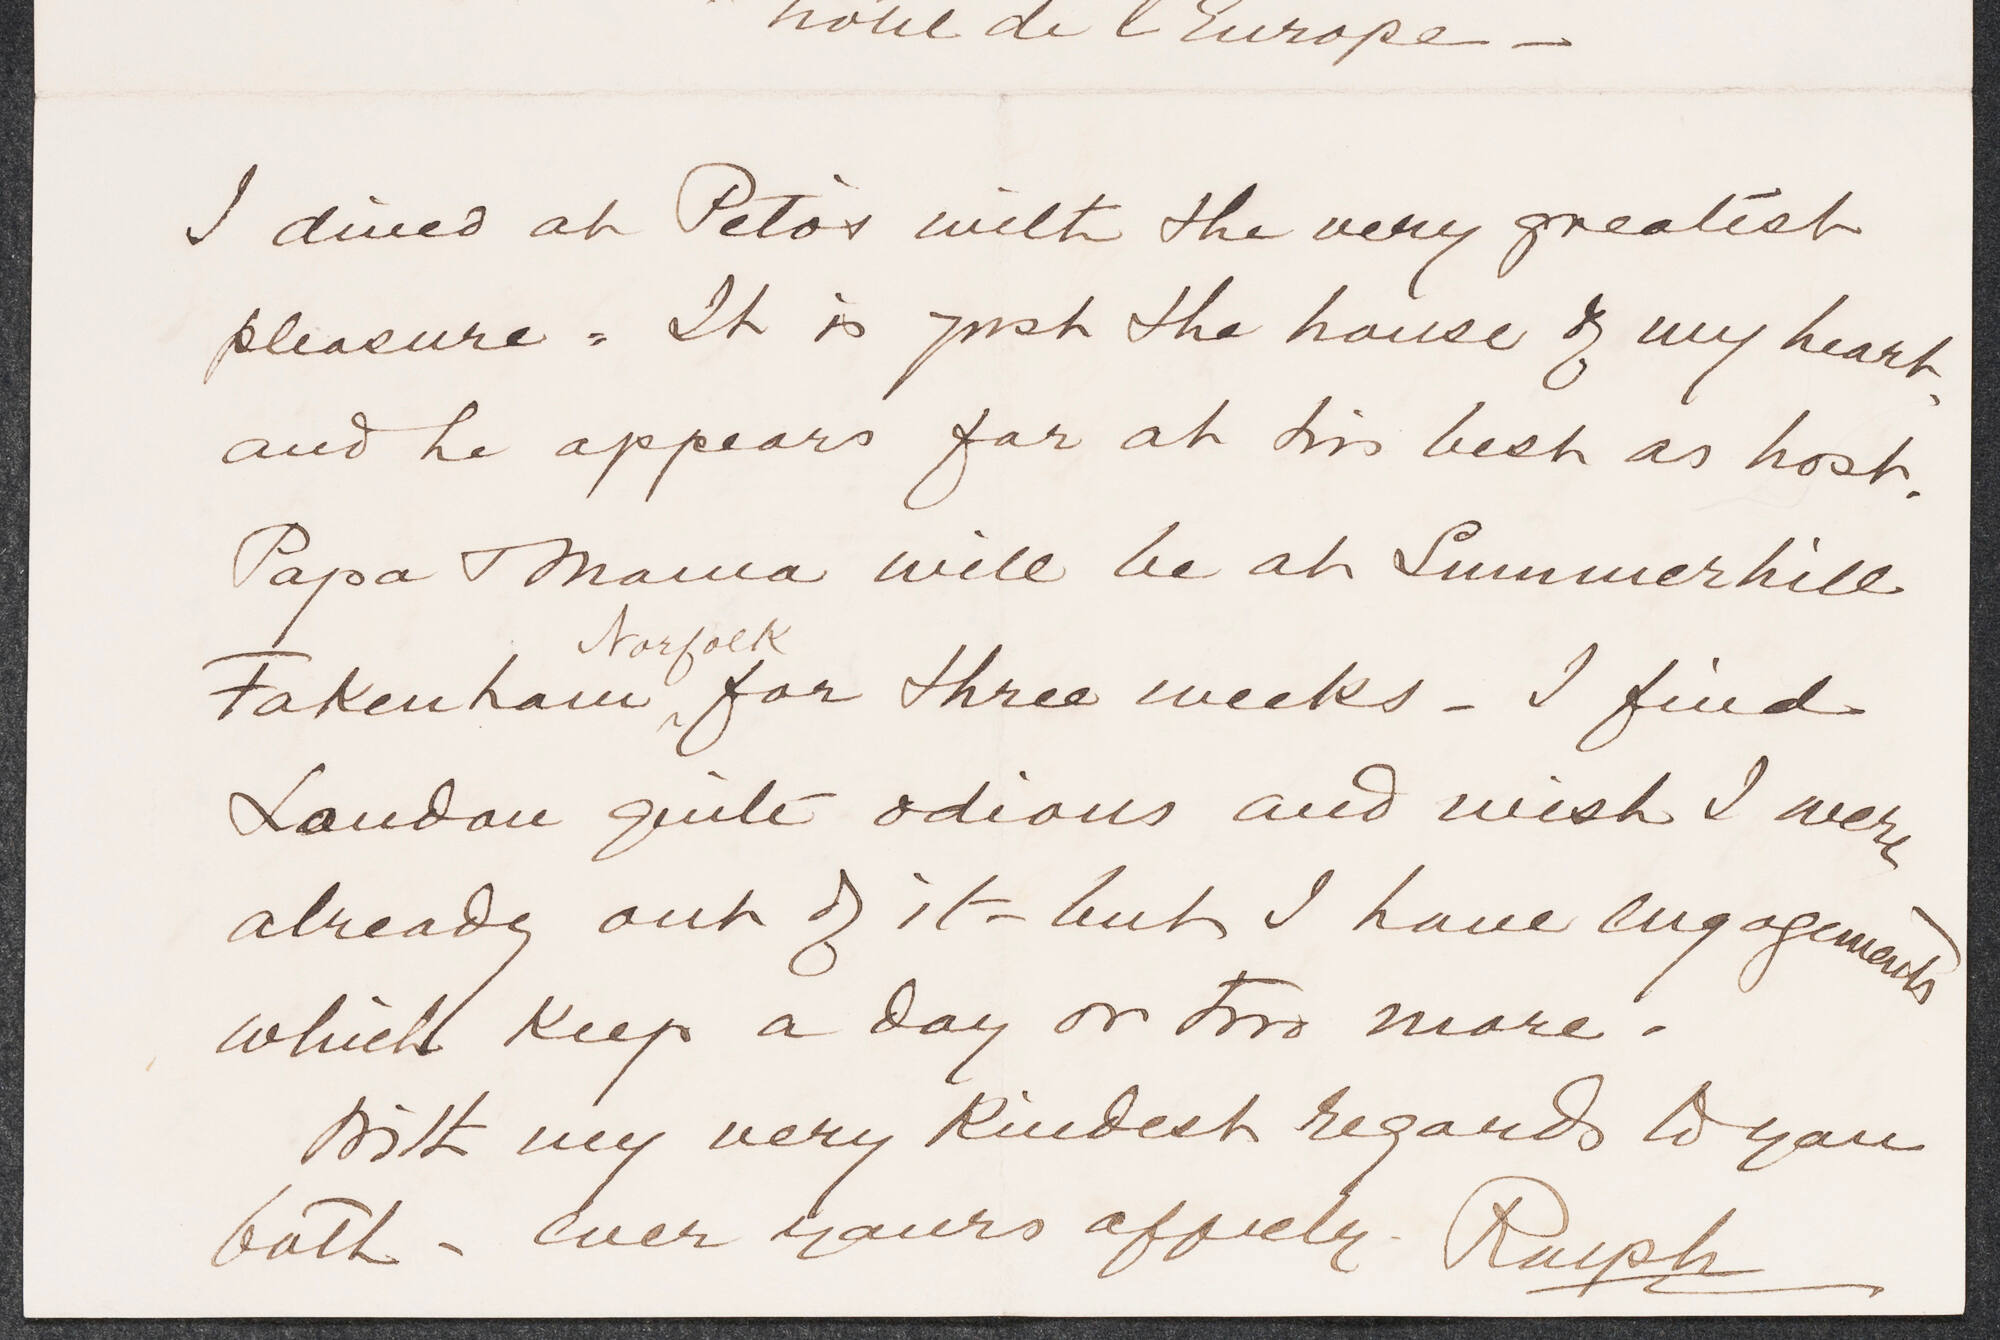 hotel de l'Europe –
I dined at Peto's with the very greatest
pleasure = It is just the house of my heart,
and he appears far at his best as host.
Papa & Mama will be at Summerhill
Norfolk
Fakenham ^ for three weeks – I find
London quite odious and wish I were
already out of it – but I have engagements
which keep a day or two more.
With my very kindest regards to you
both – ever yours affvely. Ralph